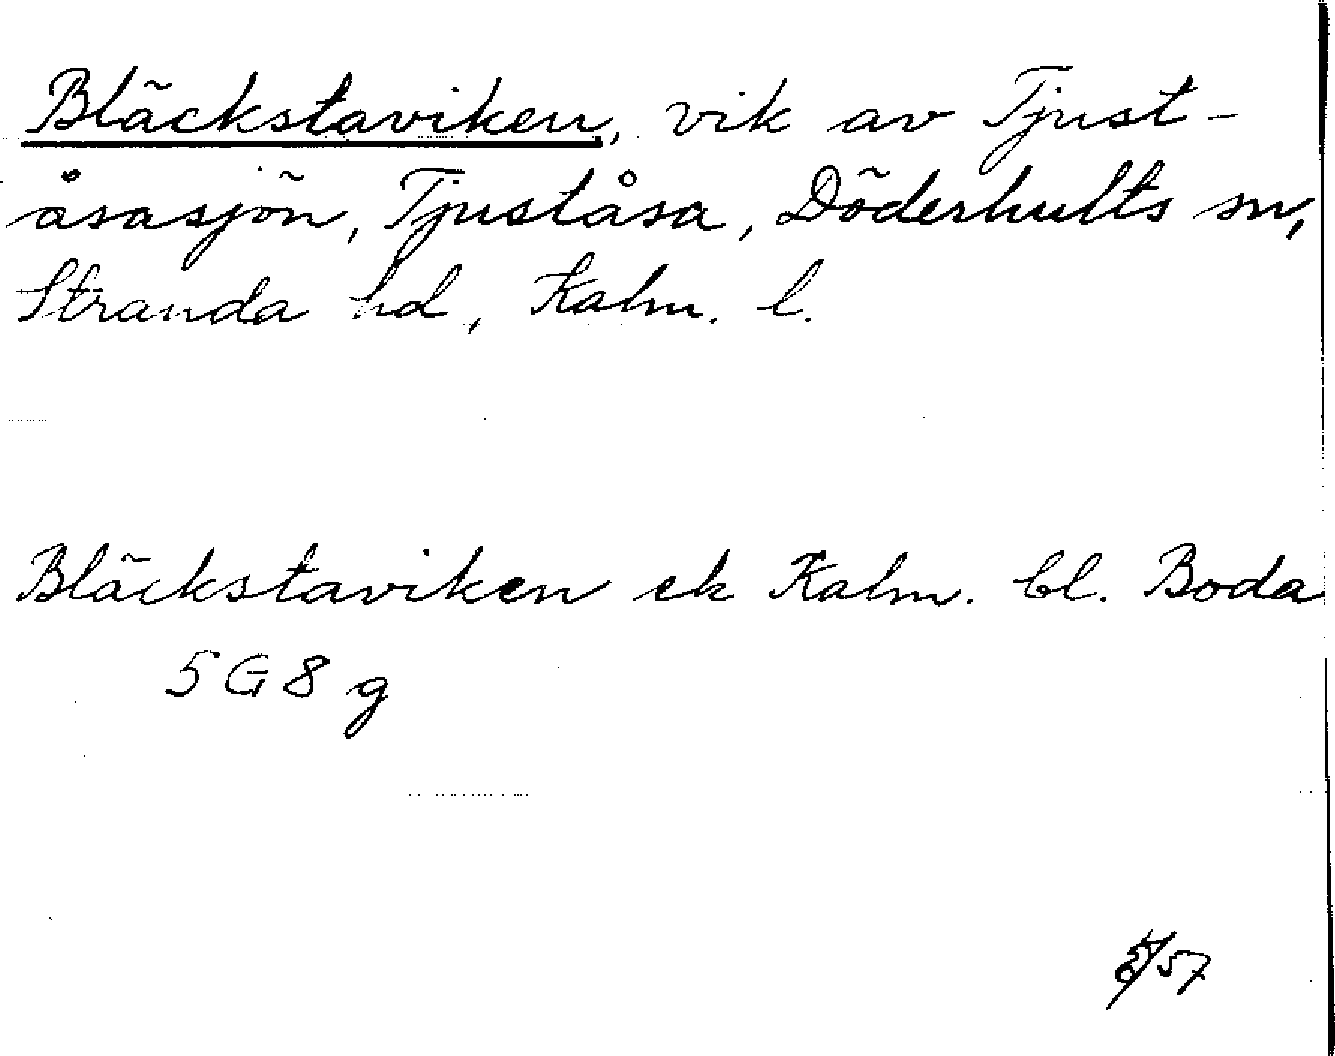 Bläckstaviken, vik av Tjust-
åsasjön, Tjuståsa, Döderhults sn,
Stranda hd, Kalm. l.
Bläckstaviken ek Kalm. bl. Boda
5 G 8 g